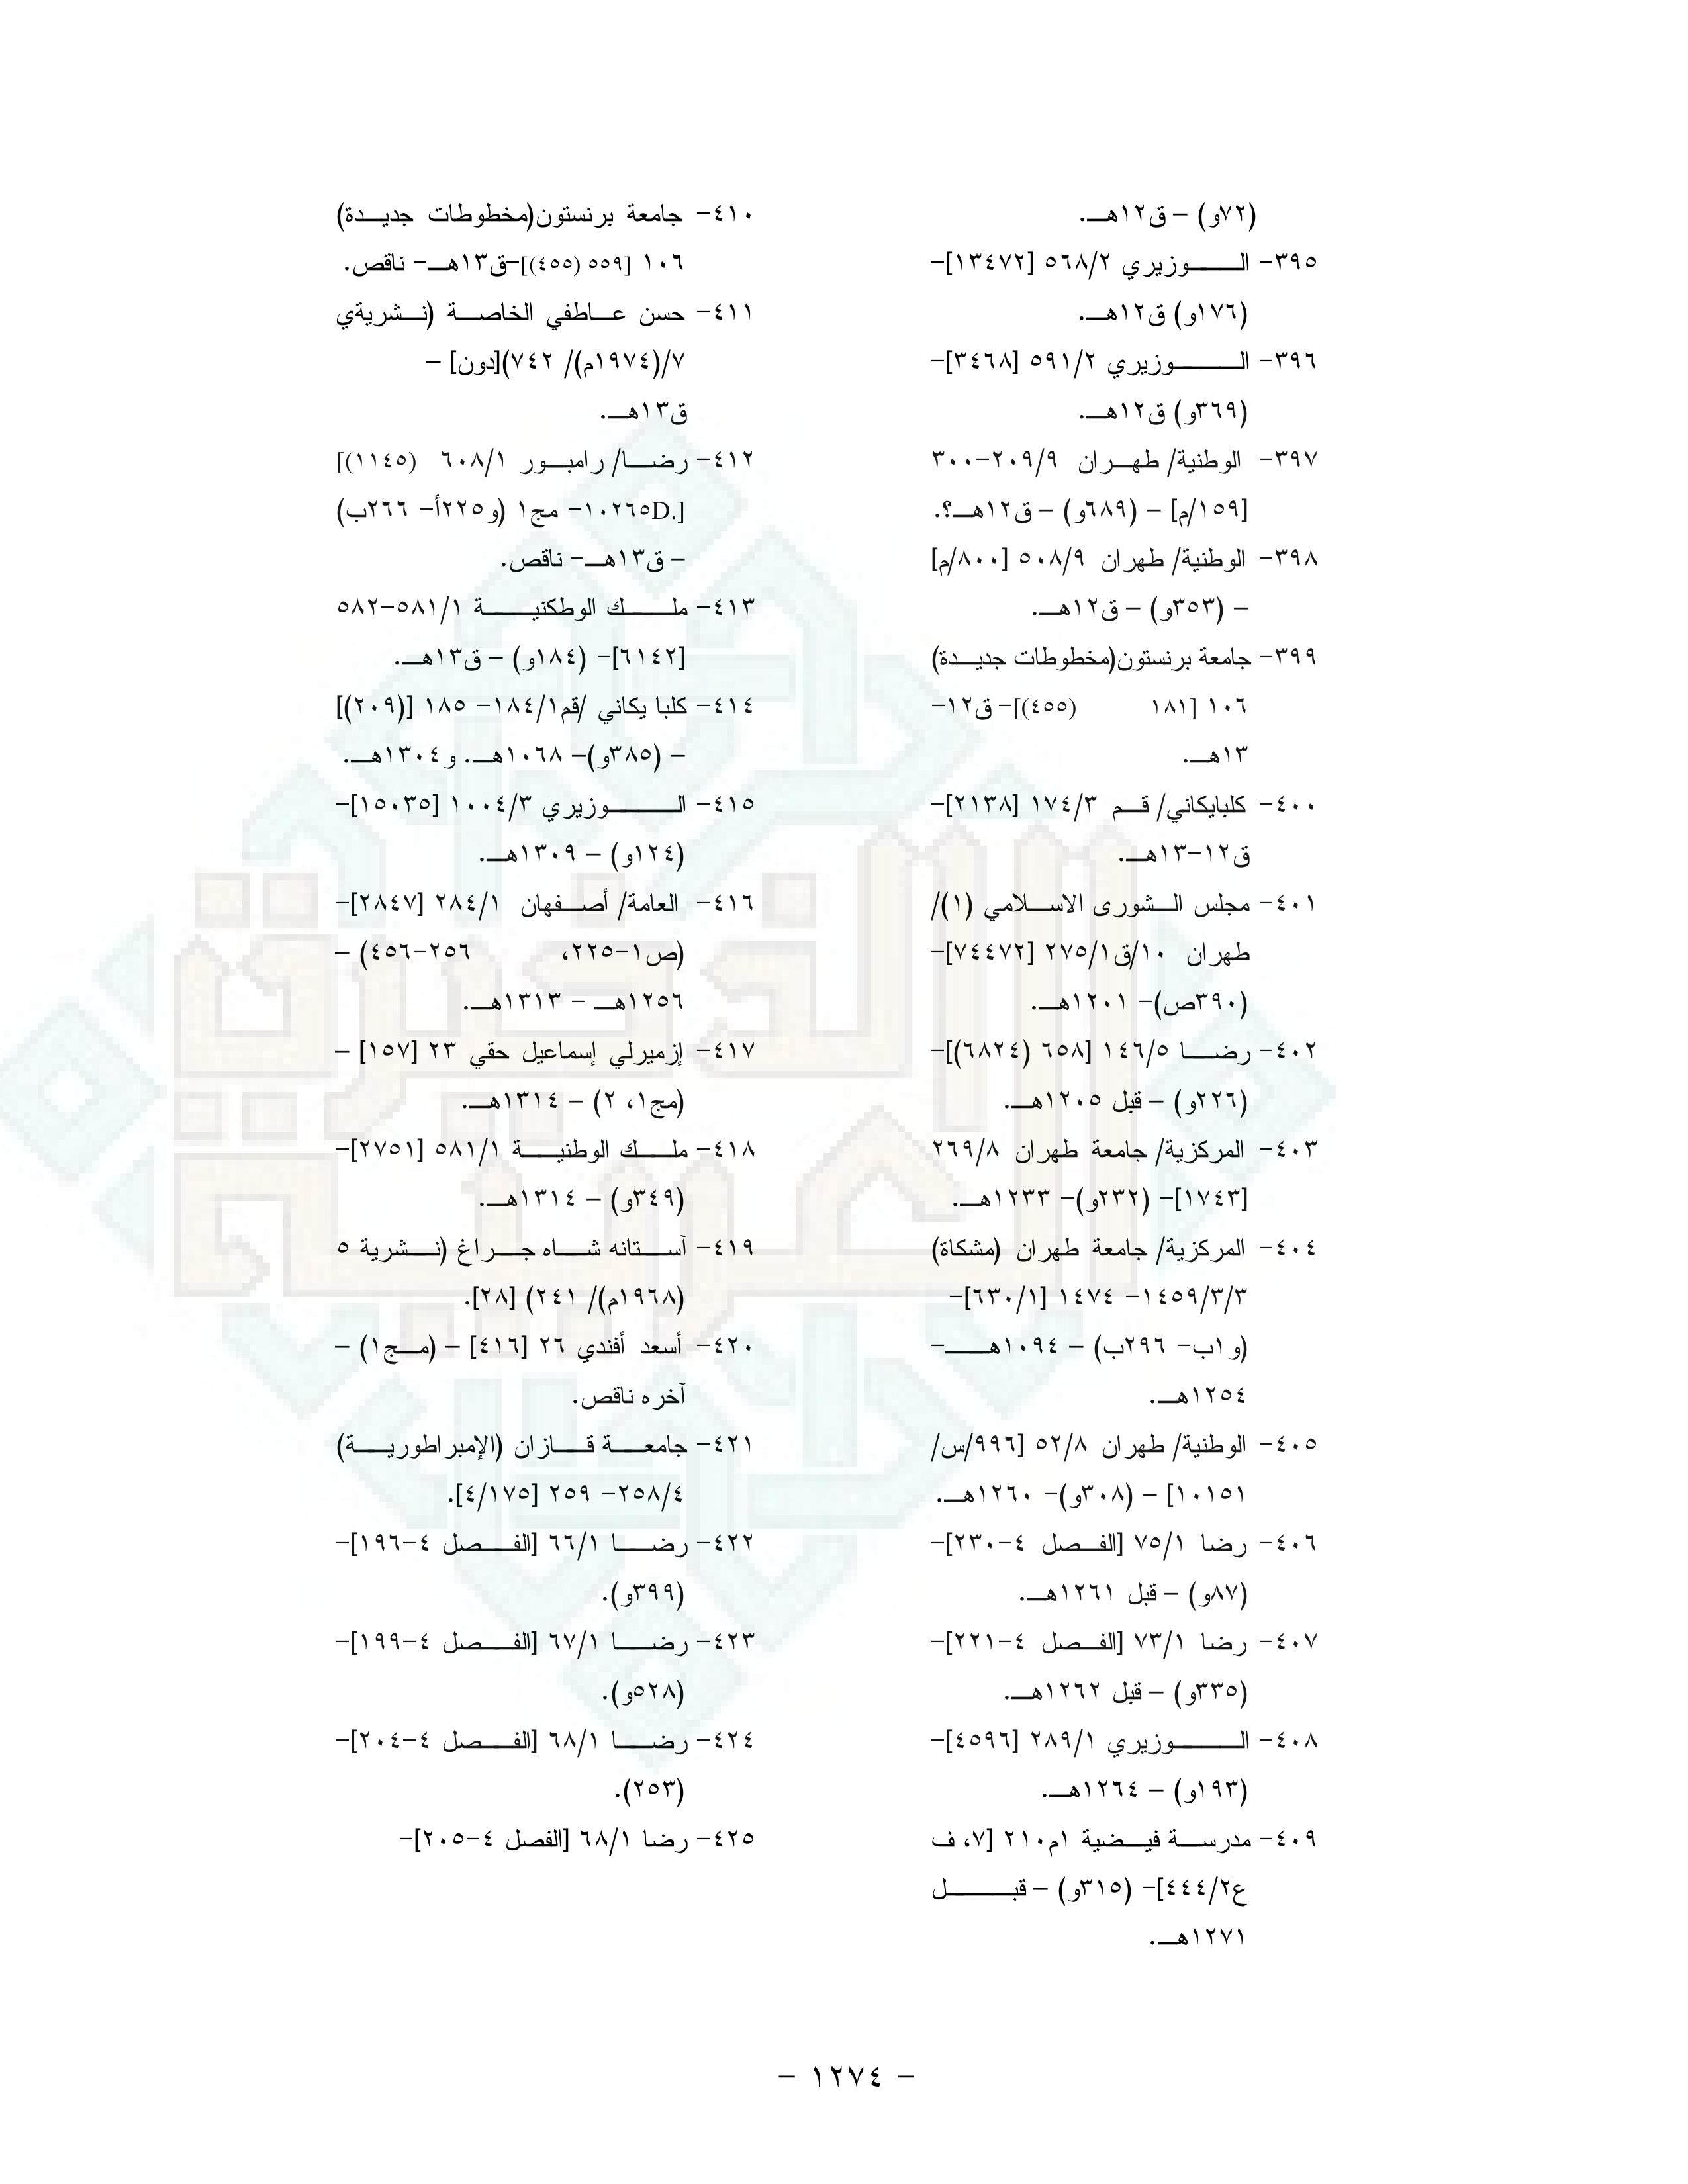 (٧٢و) – ق١٢هـ.
٣٩٥- الوزيري ٥٦٨/٢ [١٣٤٧٢]-
(١٧٦و) ق١٢هـ.
٣٩٦- الوزيري ٥٩١/٢ [٣٤٦٨]-
(٣٦٩و) ق١٢هـ.
٣٩٧- الوطنية/ طهران ٢٠٩/٩-٣٠٠
[١٥٩/م] – (٦٨٩و) – ق١٢هـ؟.
٣٩٨- الوطنية/ طهران ٥٠٨/٩ [٨٠٠/م]
– (٣٥٣و) – ق١٢هـ.
٣٩٩- جامعة برنستون(مخطوطات جديدة)
١٠٦ [١٨١ (٤٥٥)]- ق١٢-
١٣هـ.
٤٠٠- كلبايكاني/ قم ١٧٤/٣ [٢١٣٨]-
ق١٢-١٣هـ.
٤٠١- مجلس الشورى الاسلامي (١)/
طهران ١٠/ق٢٧٥/١ [٧٤٤٧٢]-
(٣٩٠ص)- ١٢٠١هـ.
٤٠٢- رضا ١٤٦/٥ [٦٥٨ (٦٨٢٤)]-
(٢٢٦و) – قبل ١٢٠٥هـ.
٤٠٣- المركزية/ جامعة طهران ٢٦٩/٨
[١٧٤٣]- (٢٣٢و)- ١٢٣٣هـ.
٤٠٤- المركزية/ جامعة طهران (مشكاة)
١٤٥٩/٣/٣- ١٤٧٤ [٦٣٠/١]-
(و١ب- ٢٩٦ب) – ١٠٩٤هـ-
١٢٥٤هـ.
٤٠٥- الوطنية/ طهران ٥٢/٨ [٩٩٦/س/
١٠١٥١] – (٣٠٨و)- ١٢٦٠هـ.
٤٠٦- رضا ٧٥/١ [الفصل ٤-٢٣٠]-
(٨٧و) – قبل ١٢٦١هـ.
٤٠٧- رضا ٧٣/١ [الفصل ٤-٢٢١]-
(٣٣٥و) – قبل ١٢٦٢هـ.
٤٠٨- الوزيري ٢٨٩/١ [٤٥٩٦]-
(١٩٣و) – ١٢٦٤هـ.
٤٠٩- مدرسة فيضية ١م٢١٠ [٧، ف
ع٤٤٤/٢]- (٣١٥و) – قبل
١٢٧١هـ.
٤١٠- جامعة برنستون(مخطوطات جديدة)
١٠٦ [٥٥٩ (٤٥٥)]-ق١٣هـ- ناقص.
٤١١- حسن عاطفي الخاصة (نشريةي
٧/(١٩٧٤م)/ ٧٤٢)[دون] –
ق١٣هـ.
٤١٢- رضا/ رامبور ٦٠٨/١ (١١٤٥)]
[.D١٠٢٦٥- مج١ (و٢٢٥أ- ٢٦٦ب)
– ق١٣هـ- ناقص.
٤١٣- ملك الوطكنية ٥٨١/١-٥٨٢
[٦١٤٢]- (١٨٤و) – ق١٣هـ.
٤١٤- كلبا يكاني /قم١٨٤/١- ١٨٥ [(٢٠٩)]
– (٣٨٥و)- ١٠٦٨هـ. و١٣٠٤هـ.
٤١٥- الوزيري ١٠٠٤/٣ [١٥٠٣٥]-
(١٢٤و) – ١٣٠٩هـ.
٤١٦- العامة/ أصفهان ٢٨٤/١ [٢٨٤٧]-
(ص١-٢٢٥، ٢٥٦-٤٥٦) –
١٢٥٦هـ – ١٣١٣هـ.
٤١٧- إزميرلي إسماعيل حقي ٢٣ [١٥٧] –
(مج١، ٢) – ١٣١٤هـ.
٤١٨- ملك الوطنية ٥٨١/١ [٢٧٥١]-
(٣٤٩و) – ١٣١٤هـ.
٤١٩- آستانه شاه جراغ (نشرية ٥
(١٩٦٨م)/ ٢٤١) [٢٨].
٤٢٠- أسعد أفندي ٢٦ [٤١٦] – (مج١) –
آخره ناقص.
٤٢١- جامعة قازان (الإمبراطورية)
٢٥٨/٤- ٢٥٩ [٤/١٧٥].
٤٢٢- رضا ٦٦/١ [الفصل ٤-١٩٦]-
(٣٩٩و).
٤٢٣- رضا ٦٧/١ [الفصل ٤-١٩٩]-
(٥٢٨و).
٤٢٤- رضا ٦٨/١ [الفصل ٤-٢٠٤]-
(٢٥٣).
٤٢٥- رضا ٦٨/١ [الفصل ٤-٢٠٥]-
- ١٢٧٤ -
الذخيرة
العربية